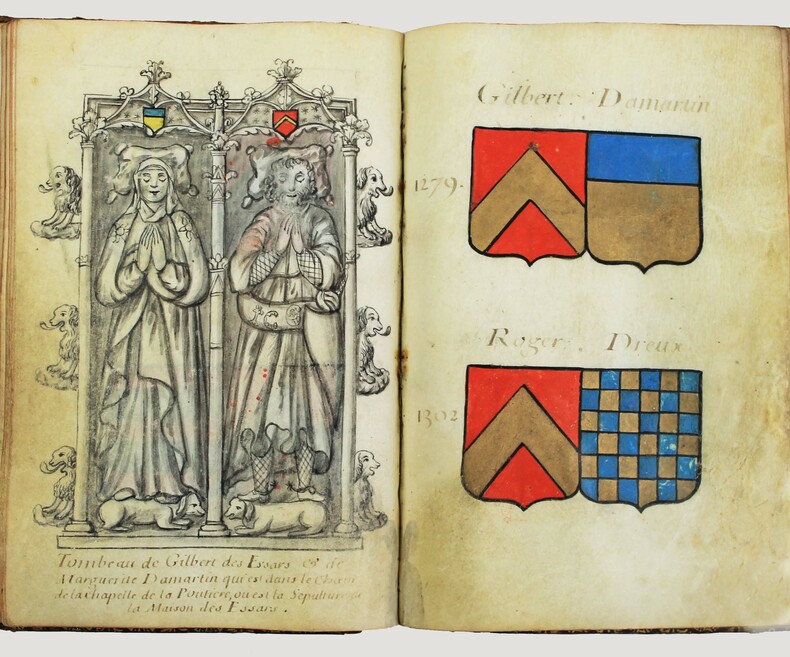 Tombeau de Gilbert des Essars & de
Marguerite Damartin qui est dans le Choeur
de la Chapelle de la Poutiere, ou est la Sepulture
la Maison des Essars.
Gilbert. Damartin
1279.
Roger. Dreux
1302